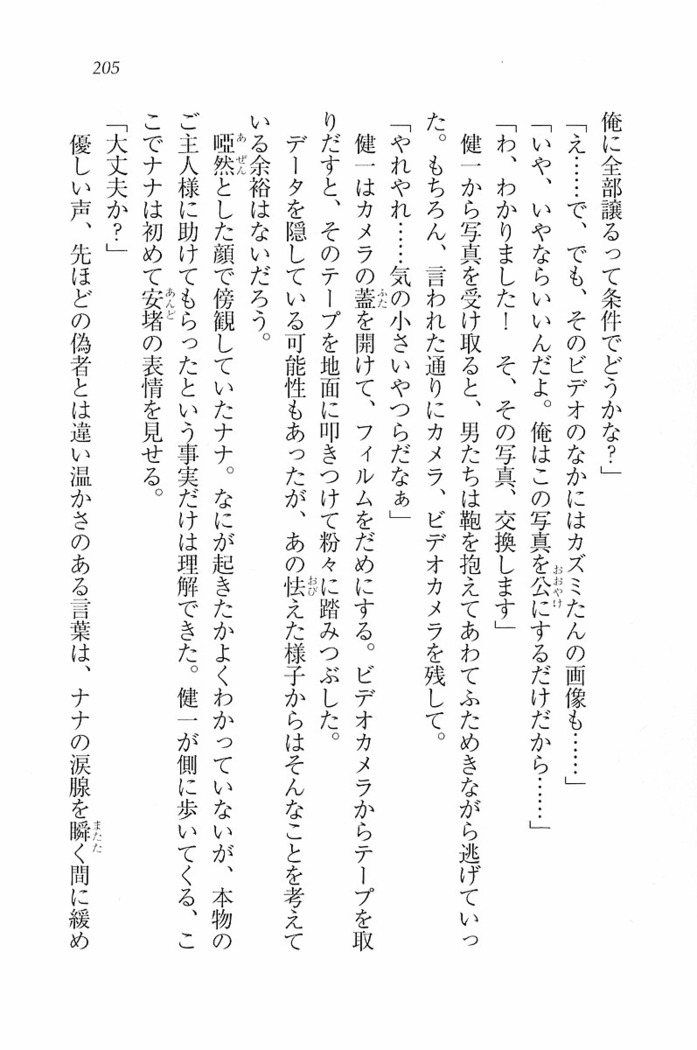 205
俺に全部譲るって条件でどうかな?」
「え……で、でも、そのビデオのなかにはカズミたんの画像も……」
「いや、いやならいいんだよ。俺はこの写真を公にするだけだから……」
「わ、わかりました! そ、その写真、交換します」
健一から写真を受け取ると、男たちは鞄を抱えてあわてふためきながら逃げていっ
た。もちろん、言われた通りにカメラ、ビデオカメラを残して。
「やれやれ……気の小さいやつらだなぁ」
健一はカメラの蓋を開けて、フィルムをだめにする。ビデオカメラからテープを取
りだすと、そのテープを地面に叩きつけて粉々に踏みつぶした。
データを隠している可能性もあったが、あの怯えた様子からはそんなことを考えて
いる余裕はないだろう。
啞然とした顔で傍観していたナナ。なにが起きたかよくわかっていないが、本物の
ご主人様に助けてもらったという事実だけは理解できた。健一が側に歩いてくる、こ
こでナナは初めて安堵の表情を見せる。
「大丈夫か?」
優しい声、先ほどの偽者とは違い温かさのある言葉は、ナナの涙腺を瞬く間に緩め